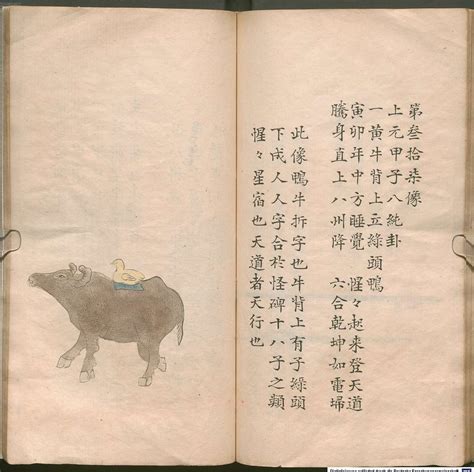 第叄拾柒像
上元甲子八純卦
一黃牛背上立綠頭鴨
寅卯年中方睡覺　惺々起來登天道
騰身直上八州降　六合乾坤如電埽
此像鴨牛拆字也牛背上有子綠頭
下成人人字合於怪碑十八子之類
惺々星宿也天道者天行也